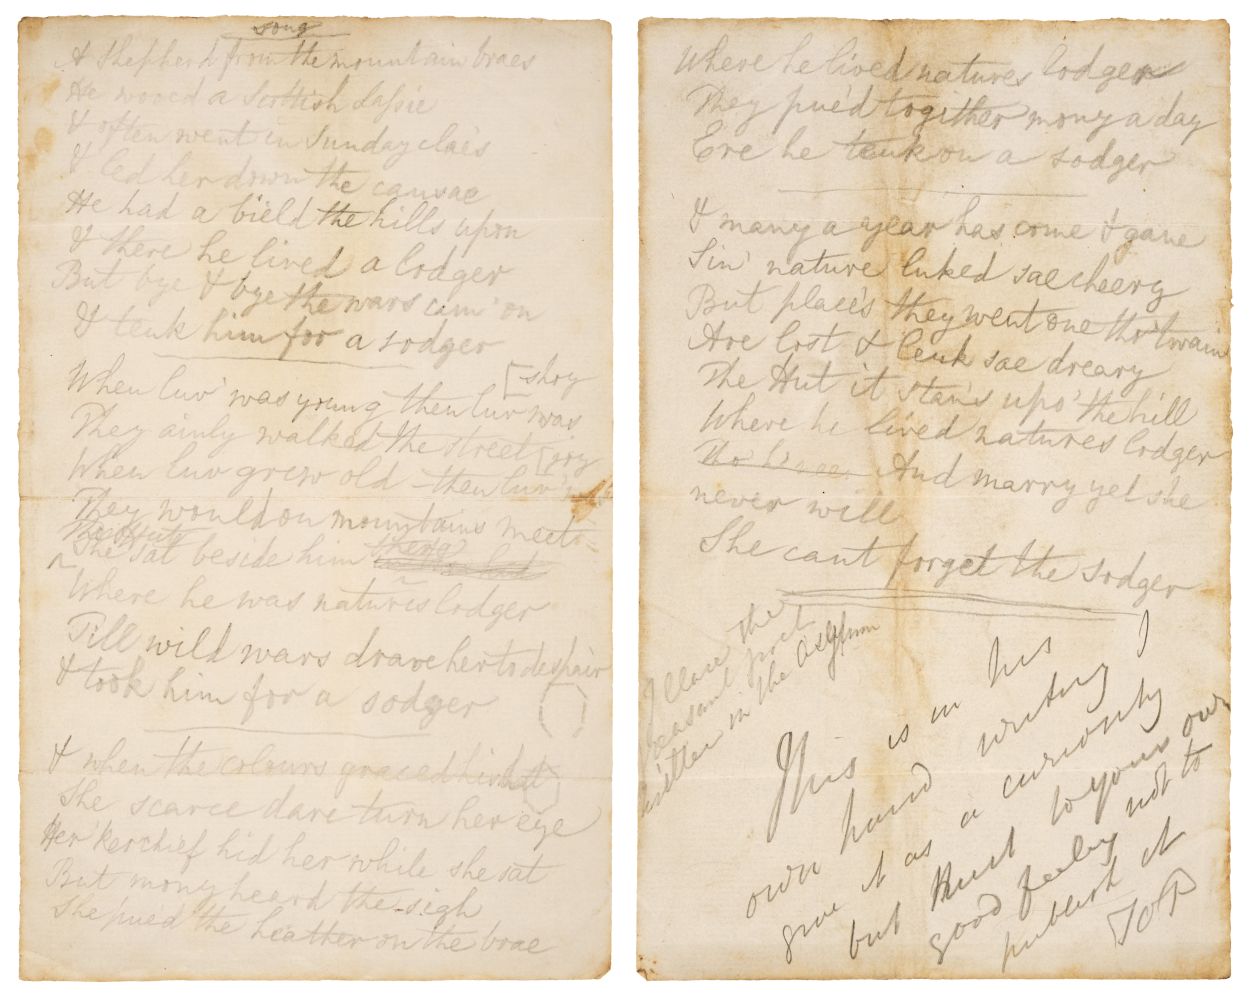 Song
A Shepherd from the mountain braes
He wooed a Scottish Lassie
& often went in Sunday claes
& led her down the causae
He had a bield the hills upon
& there he lived a lodger
But bye & bye the wars cam' on
& teuk him for a sodger
[shoy
When luv' was young then luv was
They ainly walked the street [joy
When luv grew old then luv'
They would on mountains meet
She sat beside him
Where he was natures lodger
Till wild wars drave her to despair
& took him for a sodger
& when the colours graced his hat
She scarce dare turn her eye
Her 'kerchief hid her while she sat
But mony heard the sigh
She pued the heather on the brae
Where he lived natures lodger
They pued together mony a day
Ere he teuk on a sodger
& many a year has come & gane
Sin' nature luked sae cheery
But places they went one tho' twain
Are lost & leuk sae dreary
The Hut it stan's upo' the hill
Where he lived natures lodger
And marry yet she
never will
She cant forget the sodger
Clare the
peasant poet
written in the Asylum
This is in his
own hand writing I
give it as a curiosity
but trust to your own
good feeling not to
publish it